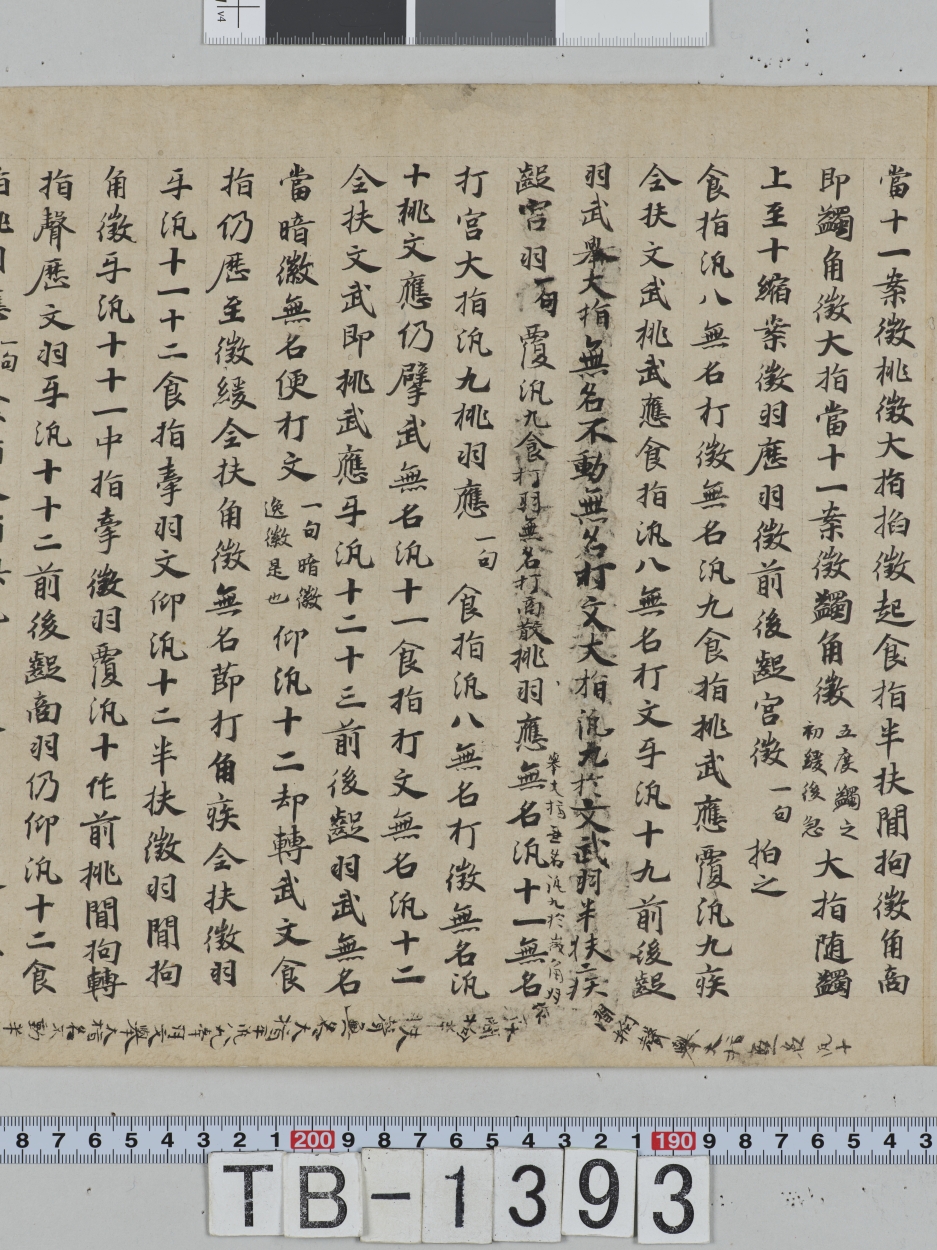 當十一案徵挑徵大指掐徵起食指半扶間拘徵角商
即蠲角徵大指當十一案徵蠲角徵五度蠲之初緩後急大指随蠲
上至十縮案徵羽歷羽徵前後齪宮徵一句拍之
食指汎八無名打徵無名汎九食指挑武應覆汎九疾
全扶文武挑武應食指汎八無名打文㸦汎十九前後齪
羽武舉大指無名不動無名打文大指汎九於文武羽半扶疾
齪宮羽一句覆汎九食打羽無名打商散挑羽應無名汎十一無名
打宮大指汎九挑羽應一句食指汎八無名打徵無名汎
十挑文應仍擘武無名汎十一食指打文無名汎十二
全扶文武即挑武應㸦汎十二十三前後齪羽武無名
當暗徽無名便打文一句暗徽逸徽是也仰汎十二却轉武文食
指仍歷至徵緩全扶角徵無名節打角疾全扶徵羽
㸦汎十一十二食指牽羽文仰汎十二半扶徵羽間拘
角徵㸦汎十十一中指牽徵羽覆汎十作前挑間拘轉
指聲歷文羽㸦汎十十二前後齪商羽仍仰汎十二食
8 7 6 5 4 3 2 1 200 9 8 7 6 5 4 3 2 1 190 9 8 7 6 5 4 3
TB-1393